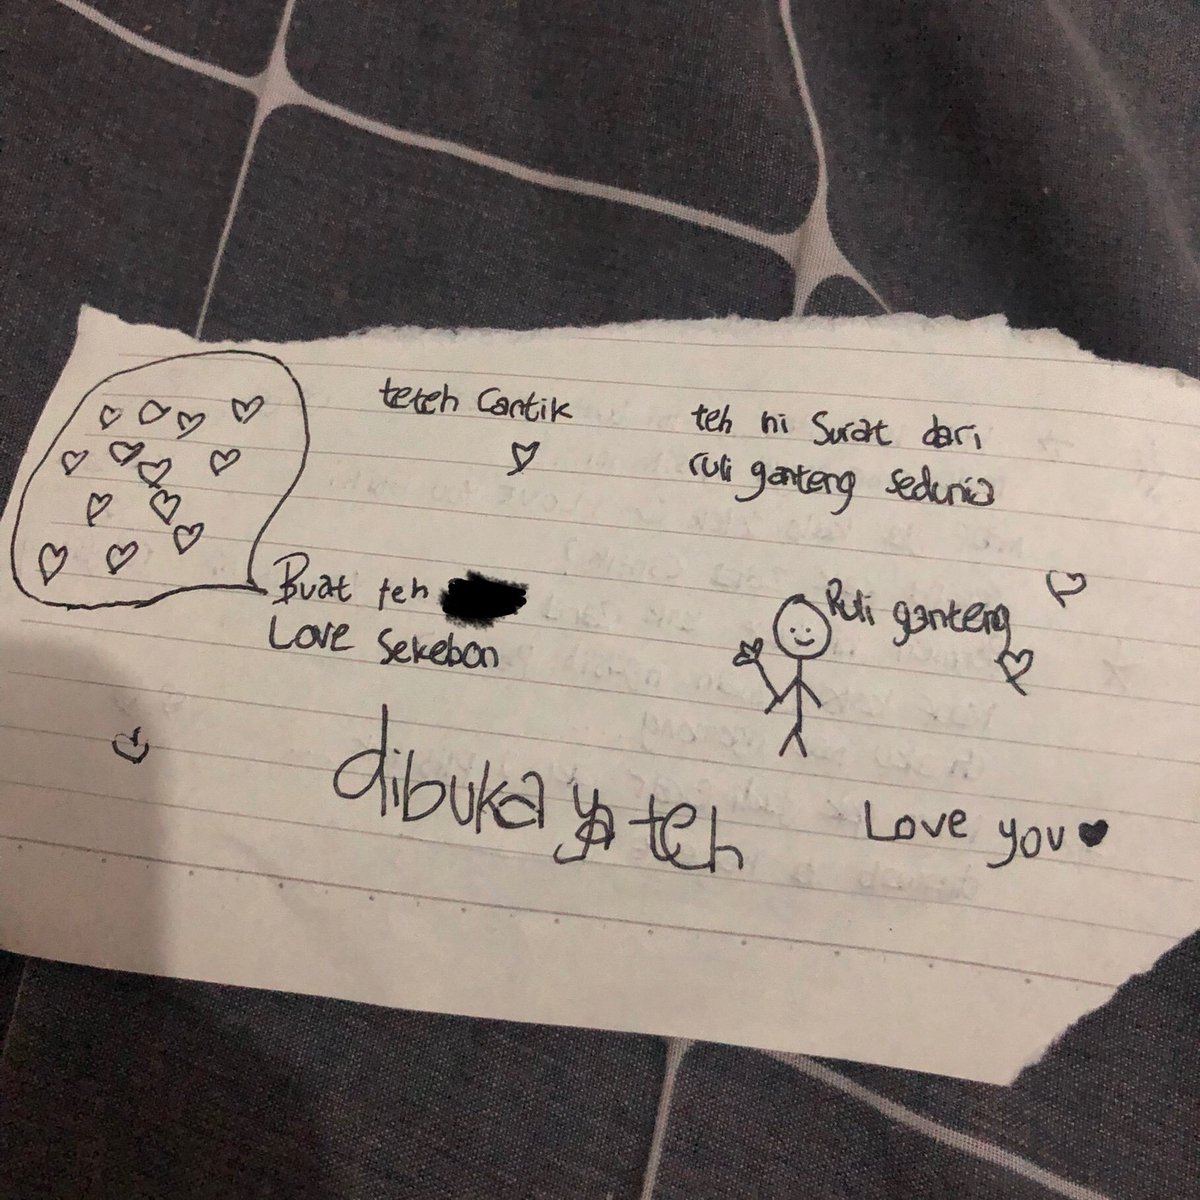 teteh Cantik
teh ni Surat dari
ruli ganteng sedunia
Buat teh
Love Sekebon
Ruli ganteng
dibuka ya teh
Love you